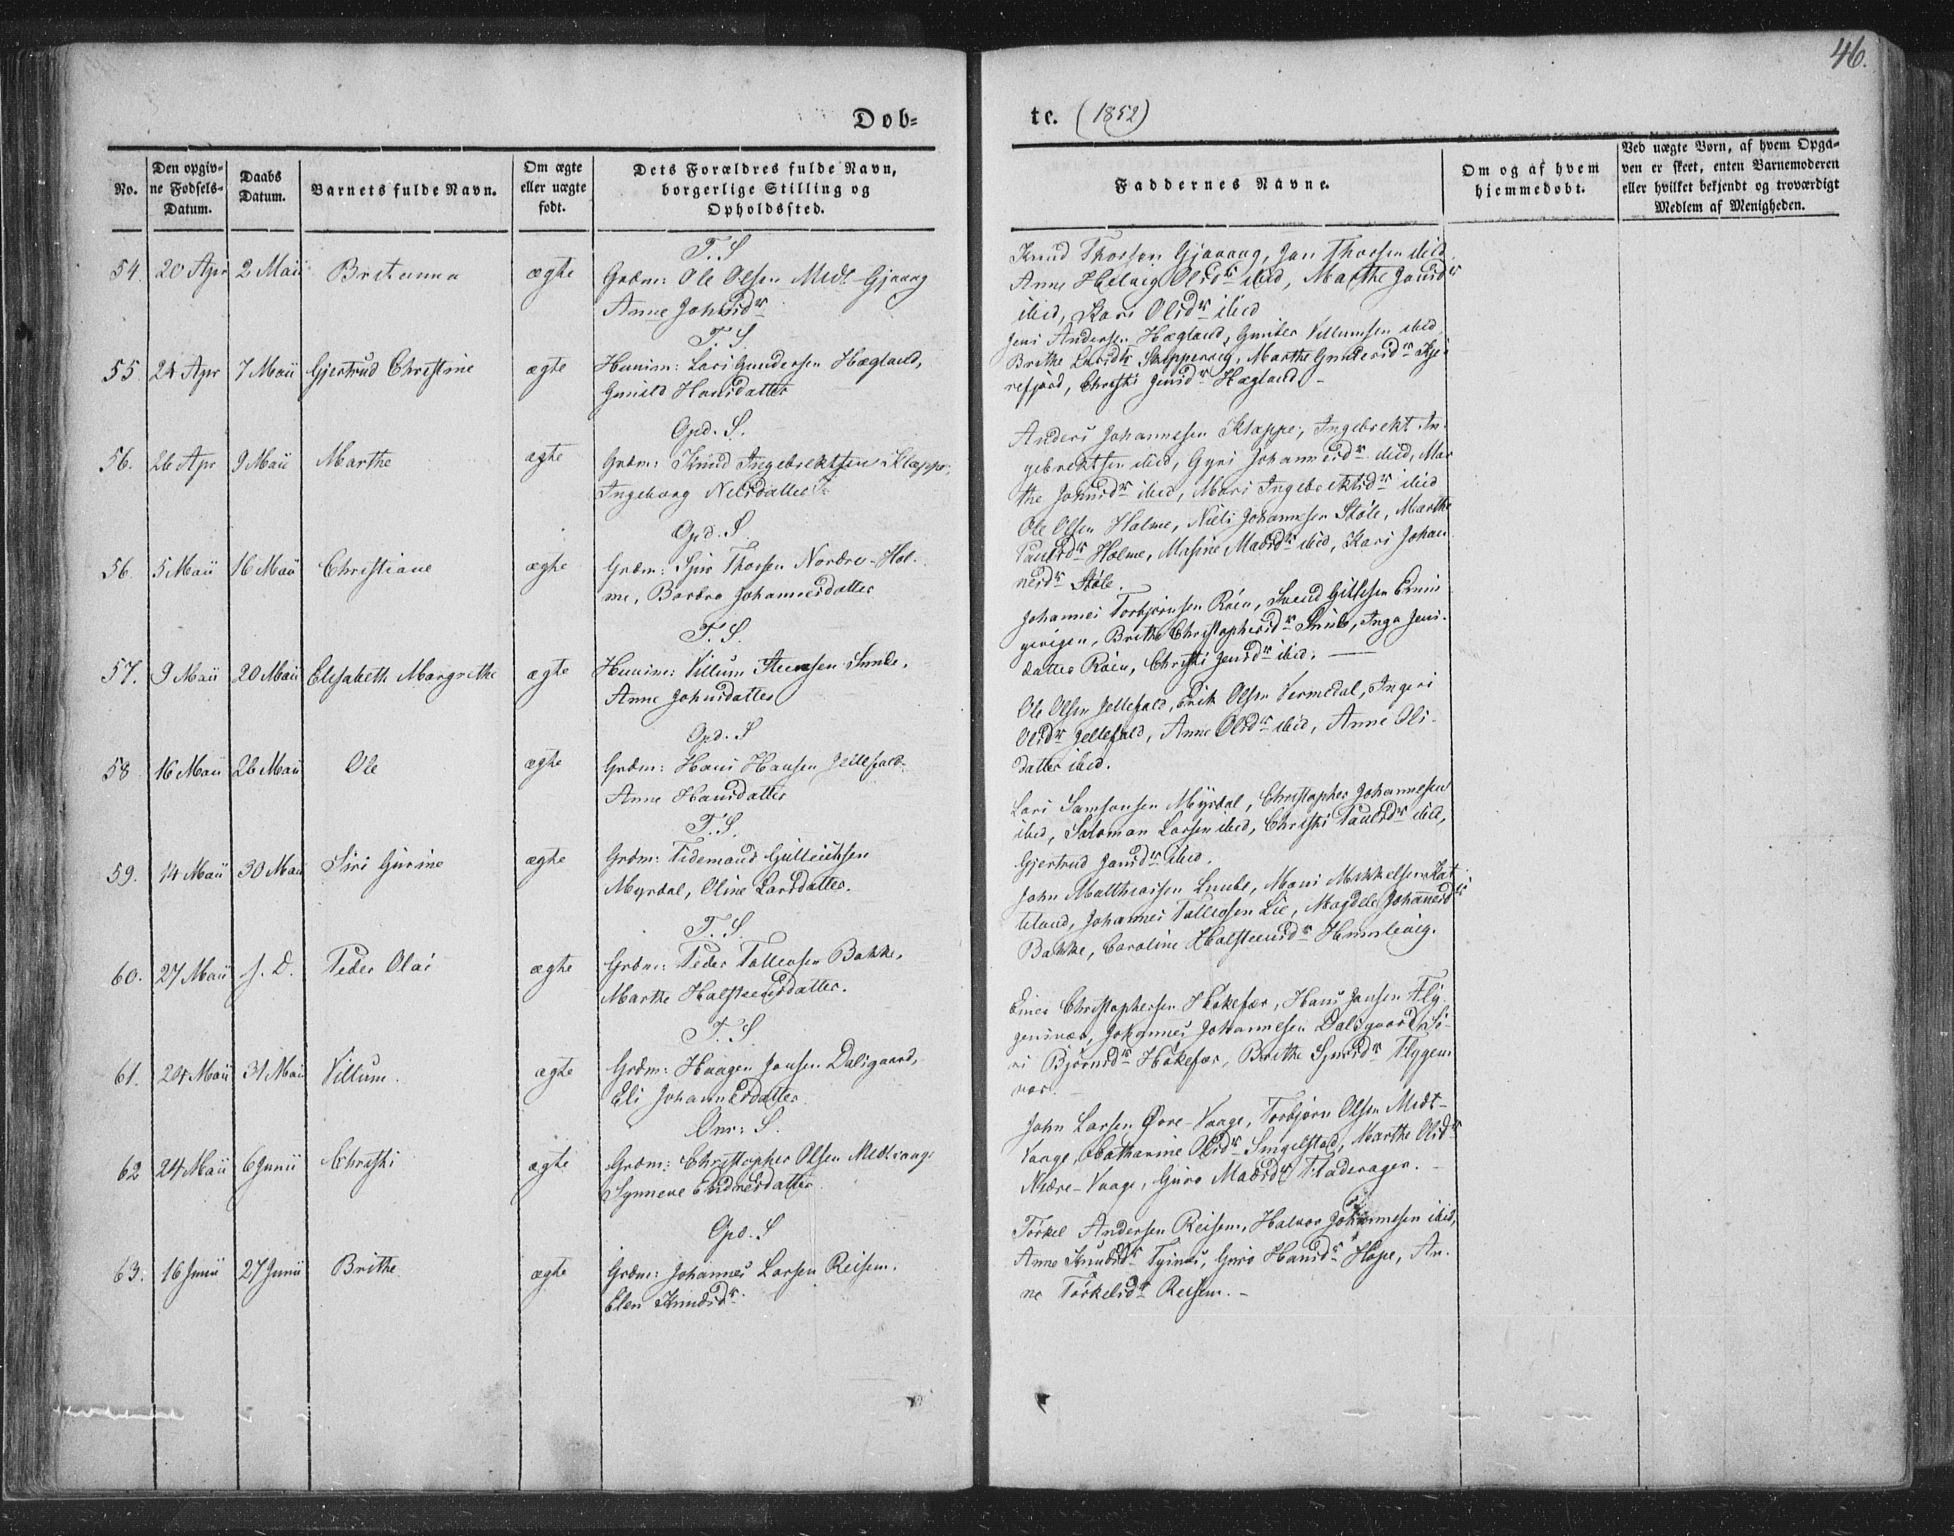 46.
Dob-
te. (1852)
No.
Den opgiv-
ne Fødsels-
Datum.
Daabs
Datum.
Barnets fulde Navn.
Om ægte
eller uægte
født.
Dets Forældres fulde Navn,
borgerlige Stilling og
Opholdssted.
Faddernes Navne.
Om og af hvem
hjemmedøbt.
Ved uægte Børn, af hvem Opgi-
ven er skeet, enten Barnemoderen
eller hvilket bekjendt og troværdigt
Medlem af Menigheden.
T. S
54. 20 Apr 2 Maii Britanna ægte Grdm: Ole Olsen Medl-Gjaaag
Anne Johnsdr
Knud Thorsen Gjaaaag, Jan Thorsen ibid
Anne Helvig Olsdr ibid, Marthe Jansdr
ibid, Kari Olsdr ibid
T. S.
55. 24 Apr 7 Maii Gjertrud Christine ægte Huusm: Lars Gundersen Hægland,
Gunild Hansdatter
Jens Andersen Hægland, Gunder Villumsen ibid,
Brithe Larsdr Skippervig, Marthe Gundersdr Kje-
refjord, Christi Jensdr Hægland. -
Opd. S.
56. 26 Apr 9 Maii Marthe ægte Grdm: Knud Ingebrektsen Klæppe,
Ingeborg Nelsdatter
Anders Johannesen Klæppe, Ingebrekt In-
gebrektsen ibid, Gyri Johannesdr ibid, Mar
the Johnsdr ibid, Mari Ingebrektsdr ibid
Opd. S
56. 5 Maii 16 Maii Christiane ægte Grdm: Sjur Thorsen Nordre-Hol-
me, Barbro Johannesdatter
Ole Olsen Holme, Niels Johannesen Støle, Marthe
Paulsdr Holme, Masine Madsdr ibid, Kari Johan
nesdr Støle.
T. S.
57. 9 Maii 20 Maii Elisabeth Margrethe ægte Huusm: Villum Steensen Lunde,
Anne Johnsdatter
Johannes Torbjørnsen Røen, Svend Gitlesen
Brithe Christophersdr Lunde, Inga Jens-
datter Røen, Christi Jensdr ibid.
Opd. S
58. 16 Maii 26 Maii Ole ægte Grdm: Hans Hansen Jellefald
Anne Hansdatter
Ole Olsen Jellefald, Erik Olsen Vermedal, Ingeri
Olsdr Jellefald, Anne Olsdr ibid, Anne Ols-
datter ibid.
T. S.
59. 14 Maii 30 Maii Siri Gurine ægte Grdm: Tidemand Gulleichsen
Myrdal, Oline Larsdatter.
Lars Samsonsen Myrdal, Christopher Johannesen
ibid, Salomon Larsen ibid, Christi Paulsdr ibid,
Gjertrud Jansdr ibid.
T. S.
60. 27 Maii s. D. Peder Olai ægte Grdm: Peder Tollevsen Bakke,
Marthe Halsteensdatter.
John Matthiasen Lunde, Mons Mikkelsen Kat
teland, Johannes Tollevsen Lie, Magdele Johannesdr
Bakke, Caroline Halsteensdr Humlevig.
T. S.
61. 24 Maii 31 Maii Villum. ægte Grdm: Haagen Jonsen Dalsgaard,
Eli Johannesdatter
Einer Christophersen Hökefær, Hans Jansen Flyg
gensvær, Johannes Johannesen Dalsgaard, Si-
ri Bjørnsdr Hökefær, Brithe Sjursdr Flyggens
vær. -
Onr: S.
62 24 Maii 6 Junii Christi ægte Grdm: Christopher Olsen Medtvaage
Synneve Endresdatter
John Larsen Øvre-Vaage, Torbjørn Olsen Medt-
Vaage, Catharine Olsdr Singelstad, Marthe Olsdr
Nedre-Vaage, Guro Madsdr Fladerager. -
Opd. S
63. 16 Junii 27 Junii Brithe ægte Grdm: Johannes Larsen Reisem.
Elen Knudsdr.
Törkel Andersen Reisem, Halvor Johannesen ibid,
Anne Knudsdr Tyines, Guro Hansdr Hope, An-
ne Törkelsdr Reisem. -